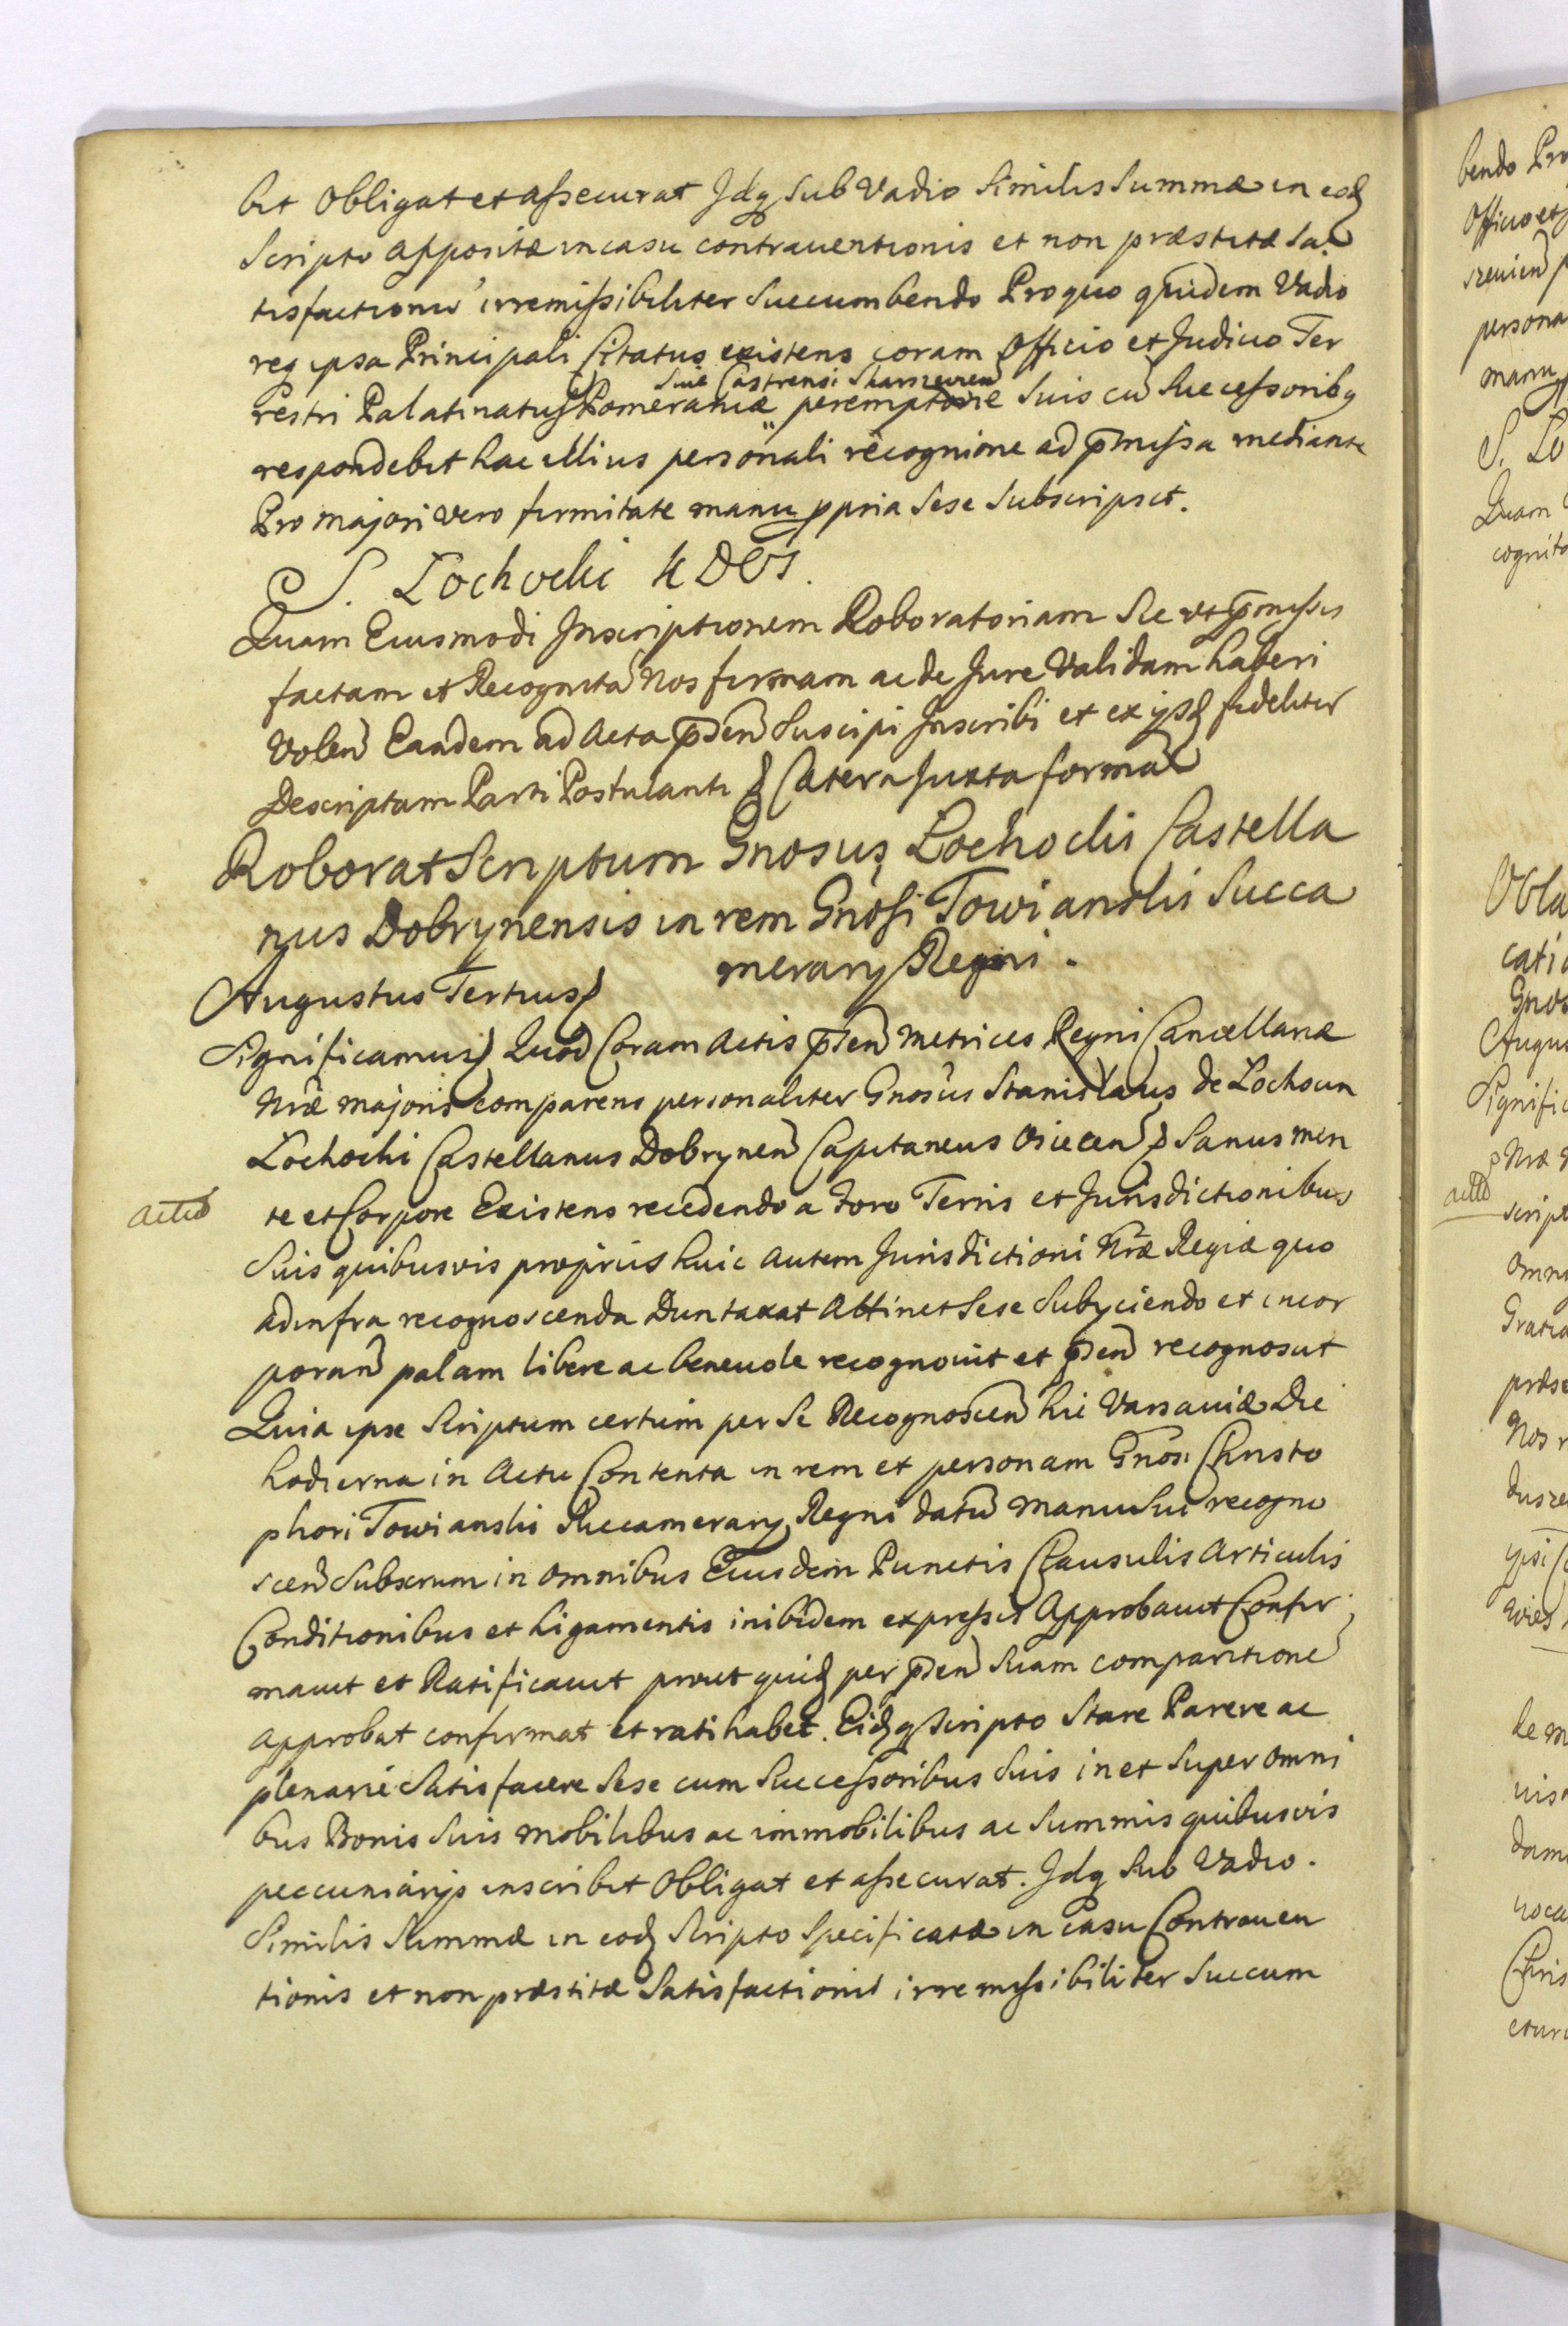 bit Obligat et assecurat Idq Sub Vadio Similis Summæ in eod
Scripto Appositæ in casu contrauentionis et non præstitæ Sa
tisfactionis irremissibiliter Succumbendo Pro quo quidem Vadio
req ipsa Principali Citatus existens coram Officio et Judicio Ter
Siue Castrensi Skarszeuien
restri Palatinatus Pomeraniæ peremptorie Suis cu Successoribq
respondebit hac illius personali recognitione ad pmissa mediante
Pro majori vero firmitate manu ppria Sese Subscripsit.
S. Lochocki KDbs.
Quam Eiusmodi Inscriptionem Roboratoriam Sic ut pmissis
factam et Recognita Nos firmam ac de Jure Validam haberi
Volen Eandem ad Acta pden Suscipi Inscribi et ex ijsd fideliter
Descriptam Parti Postulanti Cætera Juxta forma
Roborat Scriptum Gnosus Lochockis Castella
nus Dobrynensis in rem Gnosi Towianskis Succa
merarij Regni.
Augustus Tertius
Significamus Quod Coram Actis pden Metrices Regni Cancellariæ
Nræ majoris comparens personaliter Gnosus Stanislaus de Lochocin
Lochocki Castellanus Dobrynen Capitaneus Osiecen Sanus men
te et Corpore Existens recedendo a foro Terris et Jurisdictionibus
Suis quibusvis proprius huic autem Jurisdictioni Nræ Regiæ quo
ad infra recognoscenda Duntaxat Attinet Sese Subyciendo et incor
poran palam libere ac beneuole recognouit et pden recognoscit
Quia ipse Scriptum certum per Se Recognoscen hic Varsauiæ Die
hodierna in Actu Contenta in rem et personam Gnosi Christo
phori Towianski Succamerarij Regni datu manu Sui recogno
scen Subscrum in omnibus Eiusdem Punctis Clausulis Articulis
Conditionibus et Ligamentis inibidem expressis Approbauit Confir
mauit et Ratificauit prout quid per pden Suam comparitione
Approbat confirmat et ratihabet. Eidq Scripto Stare Parere ac
plenarie Satisfacere Sese cum Successoribus Suis in et Super omni
bus Bonis Suis mobilibus ac immobilibus ac Summis quibusvis
peccuniarijs inscribit Obligat et assecurat. Idq Sub Vadio.
Similis Summæ in eod Scripto Specificatæ in casu Contrauen
tionis et non præstitæ Satisfactionis irremissibiliter Succum